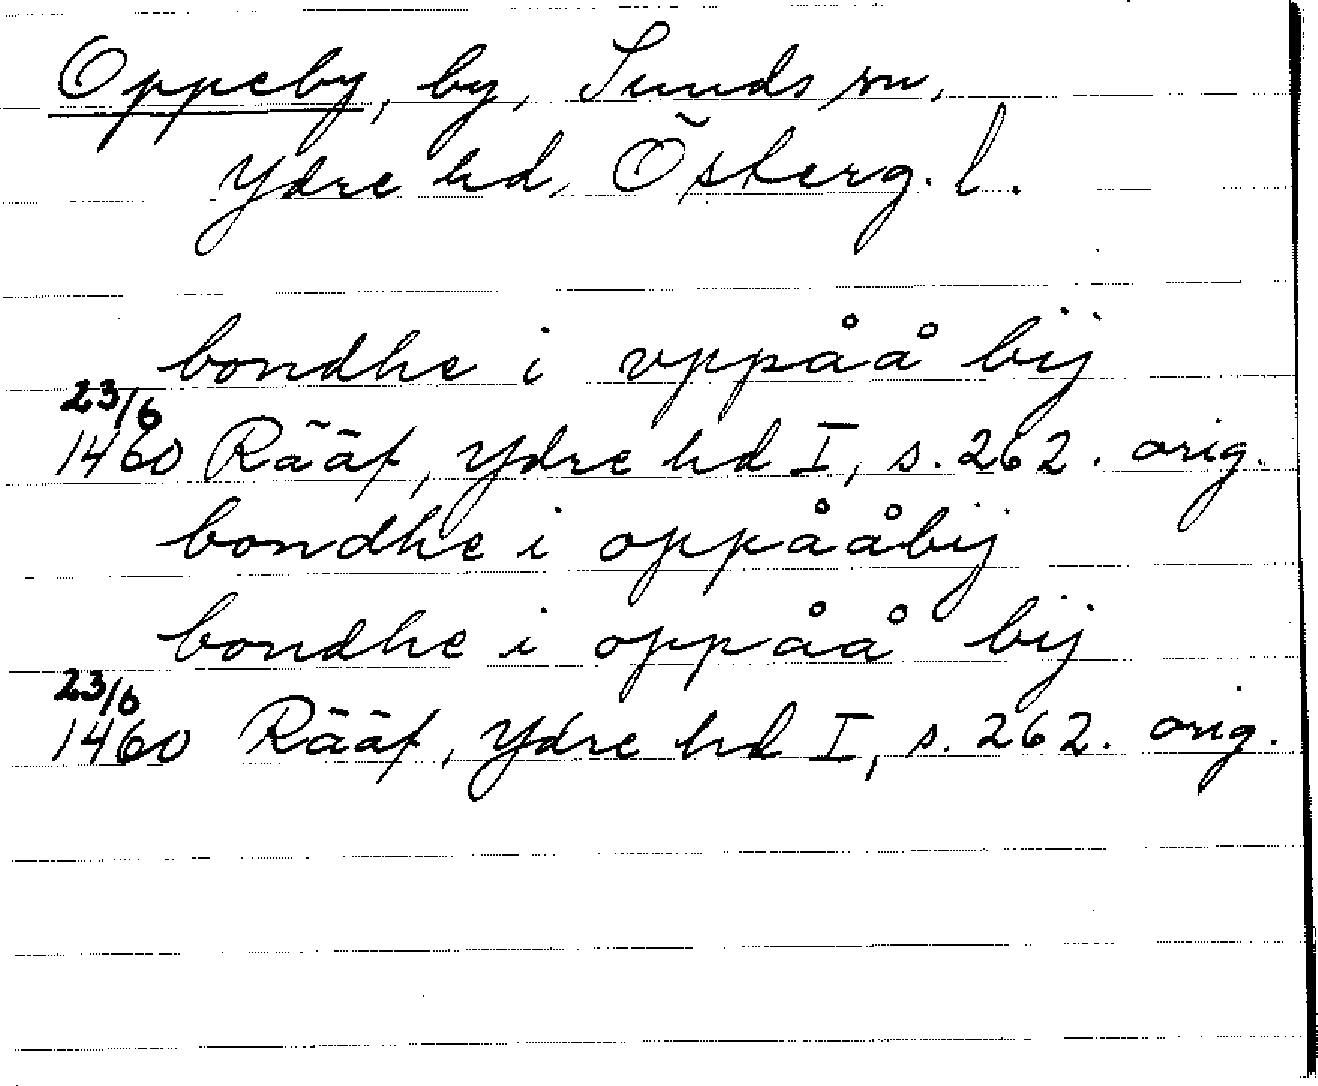 Oppeby, by, Sunds sn,
Ydre hd, Österg. l.
bondhe i vppåå bÿ
23/6
1460 Rääf, Ydre hd I, s. 262. orig.
bondhe i oppååbÿ
bondhe i oppåå bÿ
23/6
1460 Rääf, Ydre hd I, s. 262. orig.